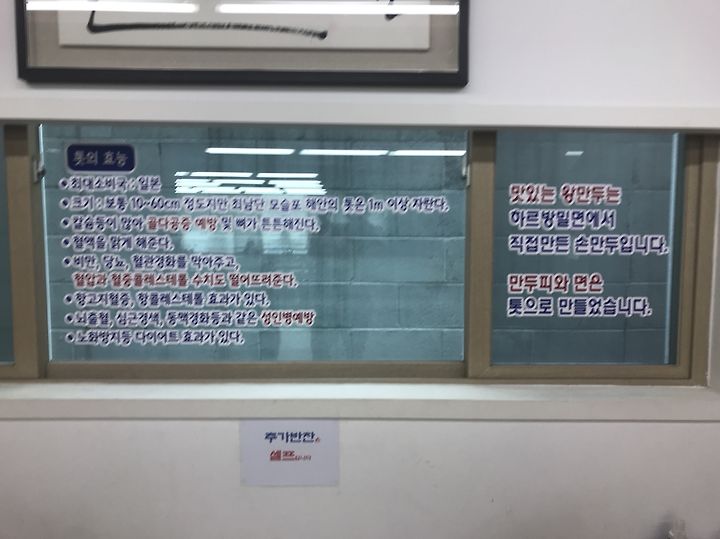 톳의 효능
• 최대소비국 : 일본
• 크기 : 보통 10~60cm 정도지만 최남단 모슬포 해안의 톳은 1m 이상 자란다.
• 칼슘등이 많아 골다공증 예방 및 뼈가 튼튼해진다.
• 혈액을 맑게 해준다.
• 비만, 당뇨, 혈관경화를 막아주고,
혈압과 혈중콜레스테롤 수치도 떨어뜨려준다.
• 항고지혈증, 항콜레스테롤 효과가 있다.
• 뇌졸혈, 심근경색, 동맥경화등과 같은 성인병예방
• 노화방지등 다이어트 효과가 있다.
맛있는 왕만두는
하르방밀면에서
직접만든 손만두입니다.
만두피와 면은
톳으로 만들었습니다.
추가반찬은
셀프입니다